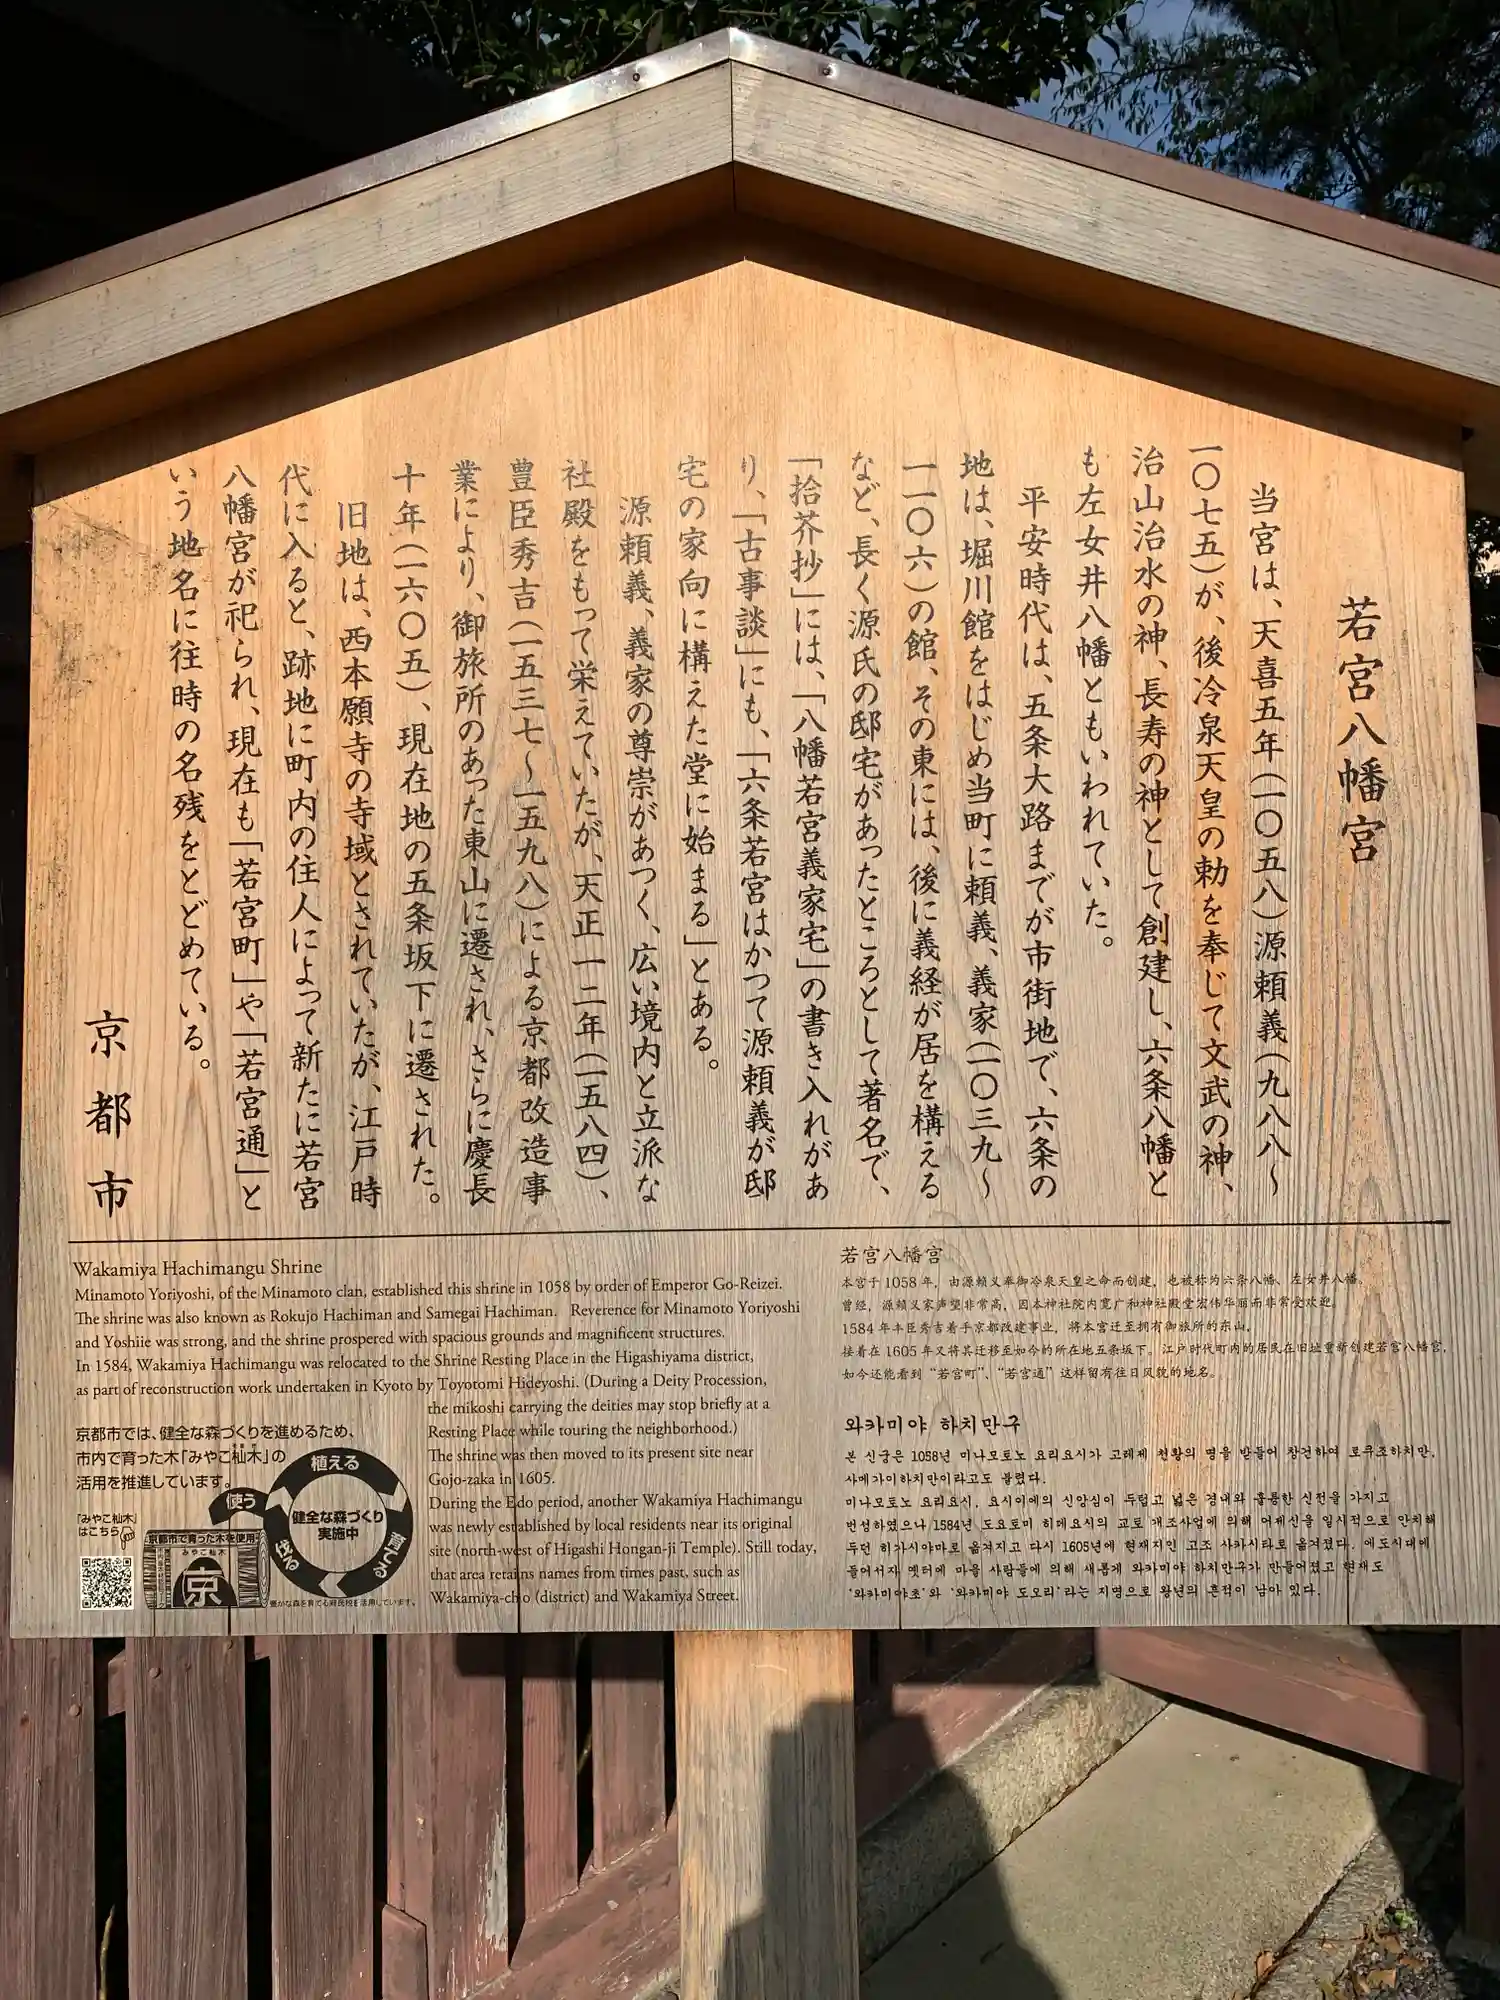 若宮八幡宮
当宮は、天喜五年(一〇五八)源頼義(九八八〜
一〇七五)が、後冷泉天皇の勅を奉じて文武の神、
治山治水の神、長寿の神として創建し、六条八幡と
も左女井八幡ともいわれていた。
平安時代は、五条大路までが市街地で、六条の
地は、堀川館をはじめ当町に頼義、義家(一〇三九〜
一一〇六)の館、その東には、後に義経が居を構える
など、長く源氏の邸宅があったところとして著名で、
「拾芥抄」には、「八幡若宮義家宅」の書き入れがあ
り、「古事談」にも、「六条若宮はかつて源頼義が邸
宅の家向に構えた堂に始まる」とある。
源頼義、義家の尊崇があつく、広い境内と立派な
社殿をもって栄えていたが、天正一二年(一五八四)、
豊臣秀吉(一五三七〜一五九八)による京都改造事
業により、御旅所のあった東山に遷され、さらに慶長
十年(一六〇五)、現在地の五条坂下に遷された。
旧地は、西本願寺の寺域とされていたが、江戸時
代に入ると、跡地に町内の住人によって新たに若宮
八幡宮が祀られ、現在も「若宮町」や「若宮通」と
いう地名に往時の名残をとどめている。
京都市
Wakamiya Hachimangu Shrine
Minamoto Yoriyoshi, of the Minamoto clan, established this shrine in 1058 by order of Emperor Go-Reizei.
The shrine was also known as Rokujo Hachiman and Samegai Hachiman. Reverence for Minamoto Yoriyoshi
and Yoshiie was strong, and the shrine prospered with spacious grounds and magnificent structures.
In 1584, Wakamiya Hachimangu was relocated to the Shrine Resting Place in the Higashiyama district,
as part of reconstruction work undertaken in Kyoto by Toyotomi Hideyoshi. (During a Deity Procession,
the mikoshi carrying the deities may stop briefly at a
Resting Place while touring the neighborhood.)
The shrine was then moved to its present site near
Gojo-zaka in 1605.
During the Edo period, another Wakamiya Hachimangu
was newly established by local residents near its original
site (north-west of Higashi Hongan-ji Temple). Still today,
that area retains names from times past, such as
Wakamiya-cho (district) and Wakamiya Street.
京都市では、健全な森づくりを進めるため、
市内で育った木「みやこ杣木」の
活用を推進しています。
「みやこ杣木」
はこちら
京都市で育った木を使用
みやこ杣木
京
植える
育てる
伐る
使う
健全な森づくり
実施中
豊かな森を育てる府民税を活用しています。
若宫八幡宫
本宫于 1058 年，由源赖义奉御冷泉天皇之命而创建，也被称为六条八幡、左女井八幡。
曾经，源赖义家声望非常高，因本神社院内宽广和神社殿堂宏伟华丽而非常受欢迎。
1584 年丰臣秀吉着手京都改建事业，将本宫迁至拥有御旅所的东山，
接着在 1605 年又将其迁移至如今的所在地五条坂下。江户时代町内的居民在旧址重新创建若宫八幡宫，
如今还能看到“若宫町”、“若宫通”这样留有往日风貌的地名。
와카미야 하치만구
본 신궁은 1058년 미나모토노 요리요시가 고레제 천황의 명을 받들어 창건하여 로쿠조하치만,
사메가이하치만이라고도 불렸다.
미나모토노 요리요시, 요시이에의 신앙심이 두텁고 넓은 경내와 훌륭한 신전을 가지고
번성하였으나 1584년 도요토미 히데요시의 교토 개조사업에 의해 어제신을 일시적으로 안치해
두던 히가시야마로 옮겨지고 다시 1605년에 현재지인 고조 사카시타로 옮겨졌다. 에도시대에
들어서자 옛터에 마을 사람들에 의해 새롭게 와카미야 하치만구가 만들어졌고 현재도
'와카미야초'와 '와카미야 도오리'라는 지명으로 왕년의 흔적이 남아 있다.